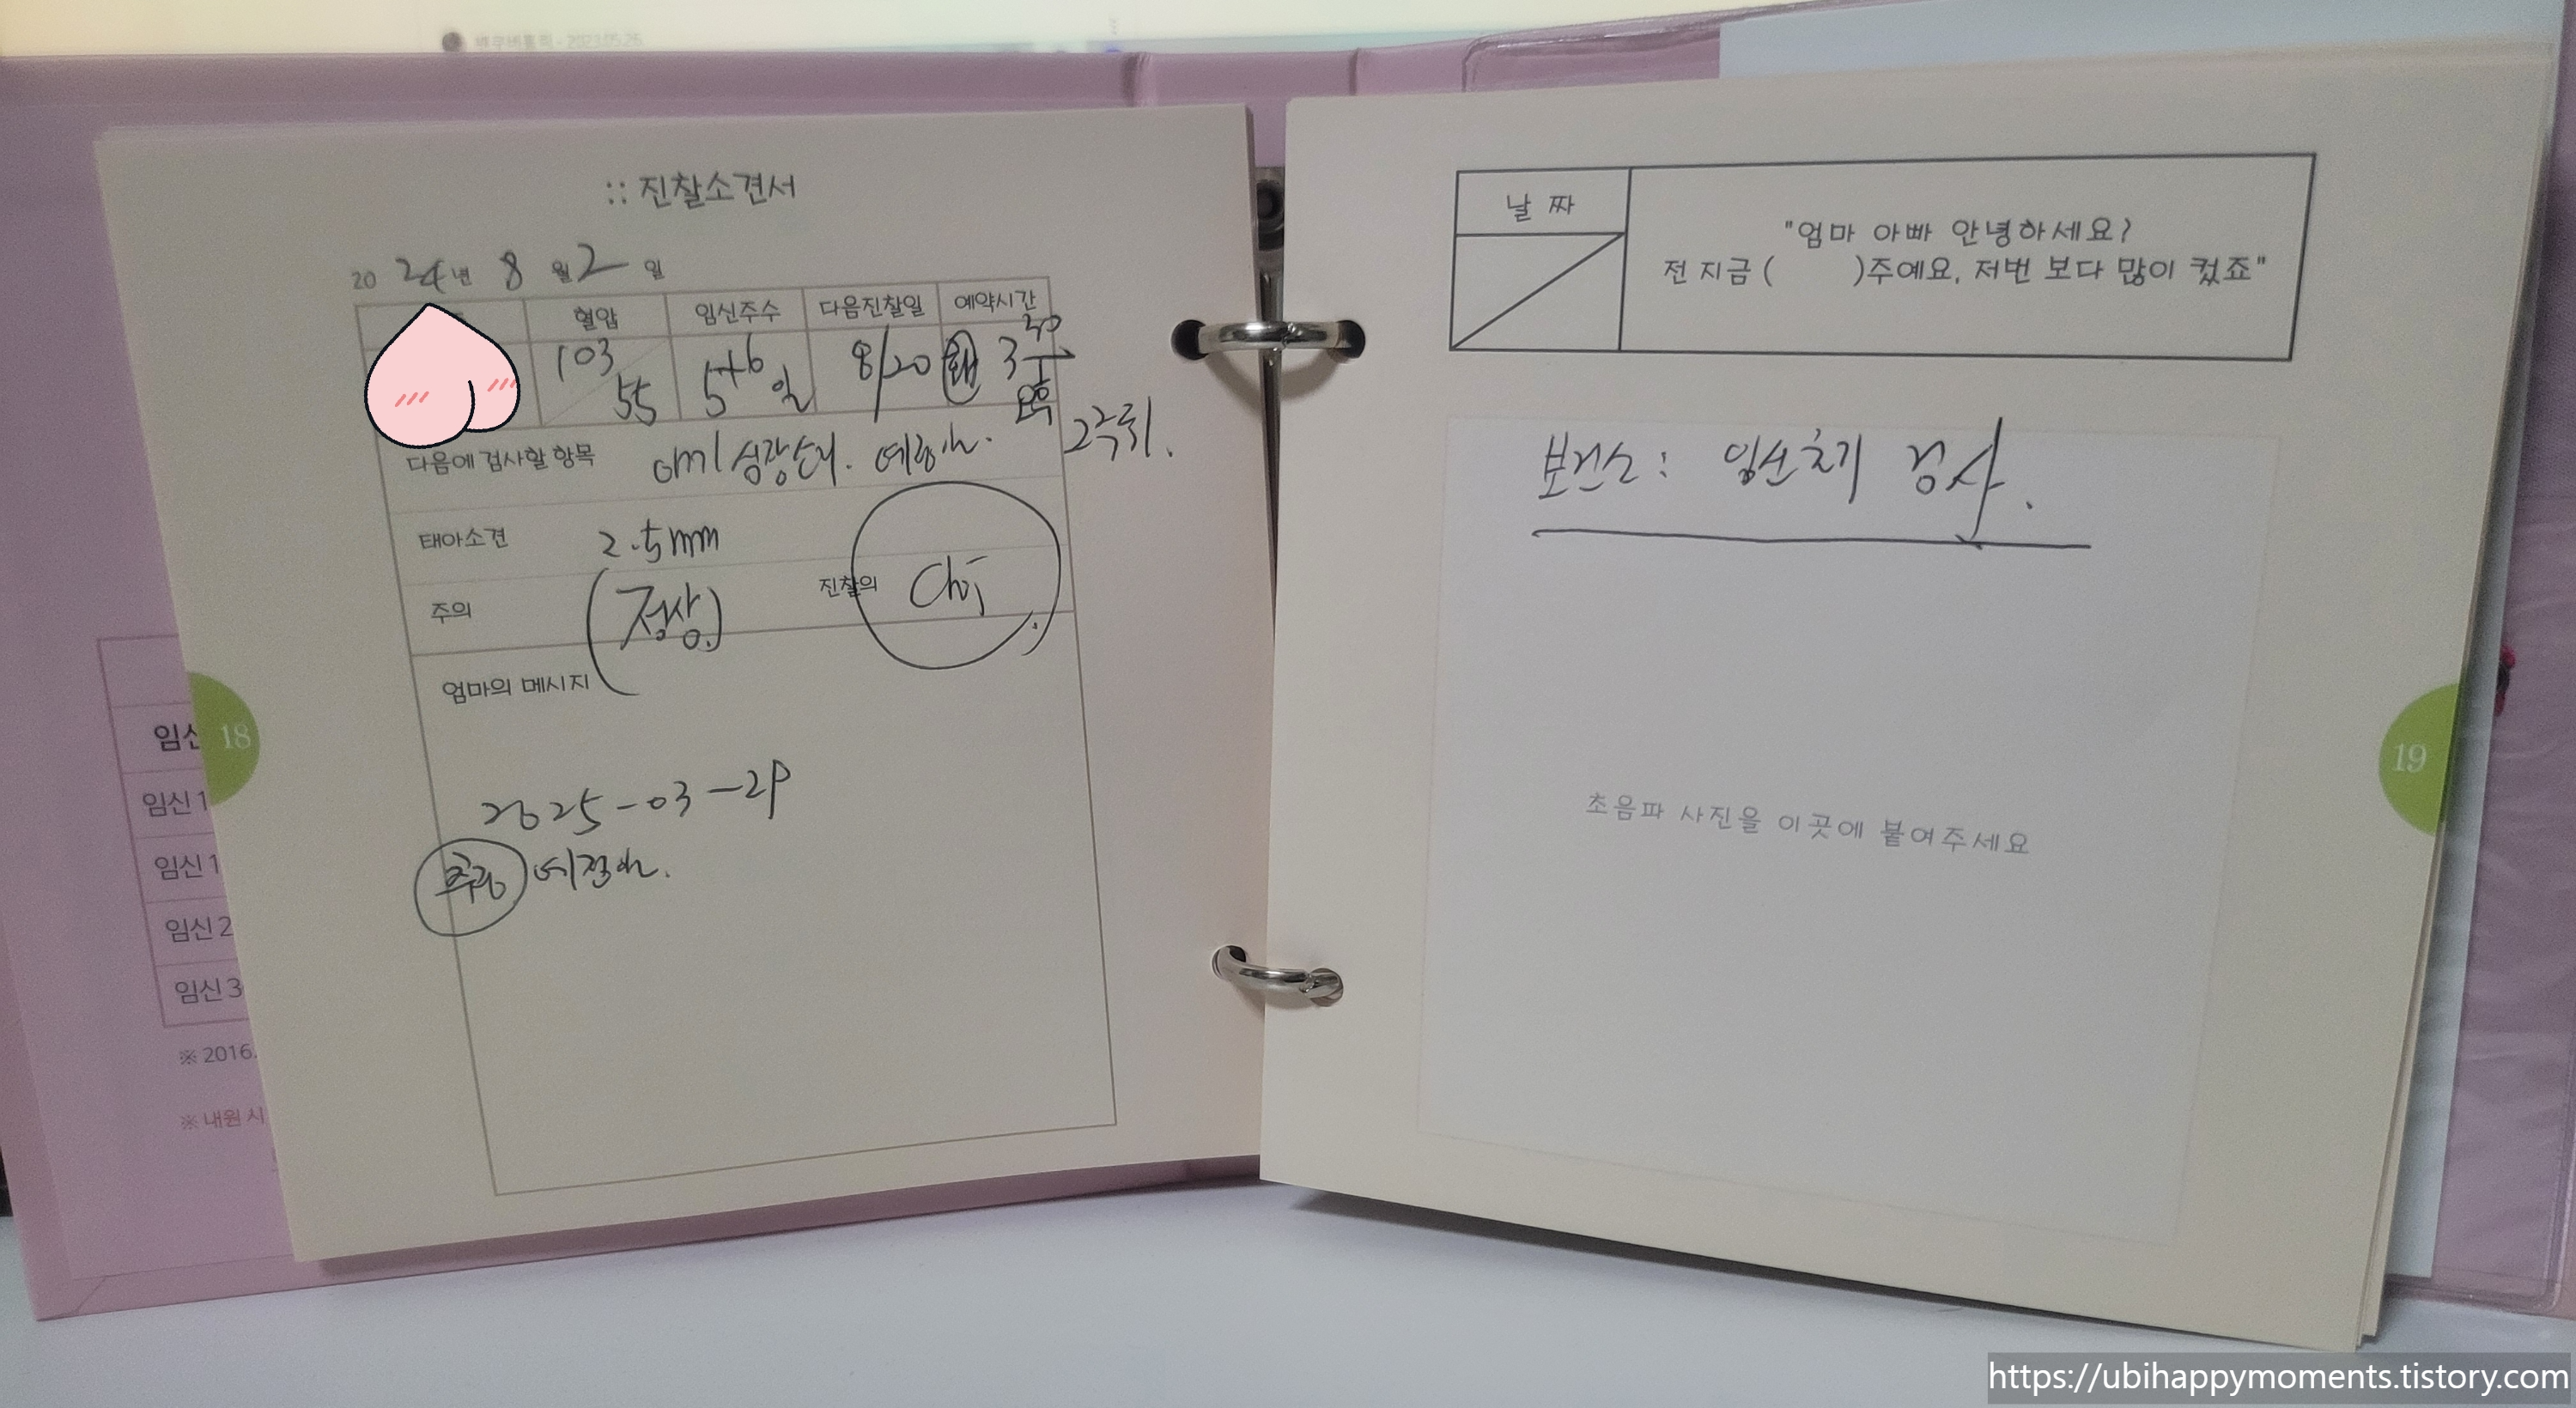 :: 진찰소견서
2024년 8월 2일
혈압 임신주수 다음진찰일 예약시간
103/55 5+6일 8/20 화 3 30
다음에 검사할 항목 아기 성장상태. 예정일. 2주뒤.
태아소견 2.5mm
주의 (정상) 진찰의 Choi
엄마의 메시지
2025-03-29
예정일.
18
임신
임신 1
임신 1
임신 2
임신 3
※ 2016.
※ 내원 시
날 짜
"엄마 아빠 안녕하세요?
전 지금 ( )주예요, 저번 보다 많이 컸죠"
보건소 : 임신초기 검사.
초음파 사진을 이곳에 붙여주세요
19
https://ubihappymoments.tistory.com